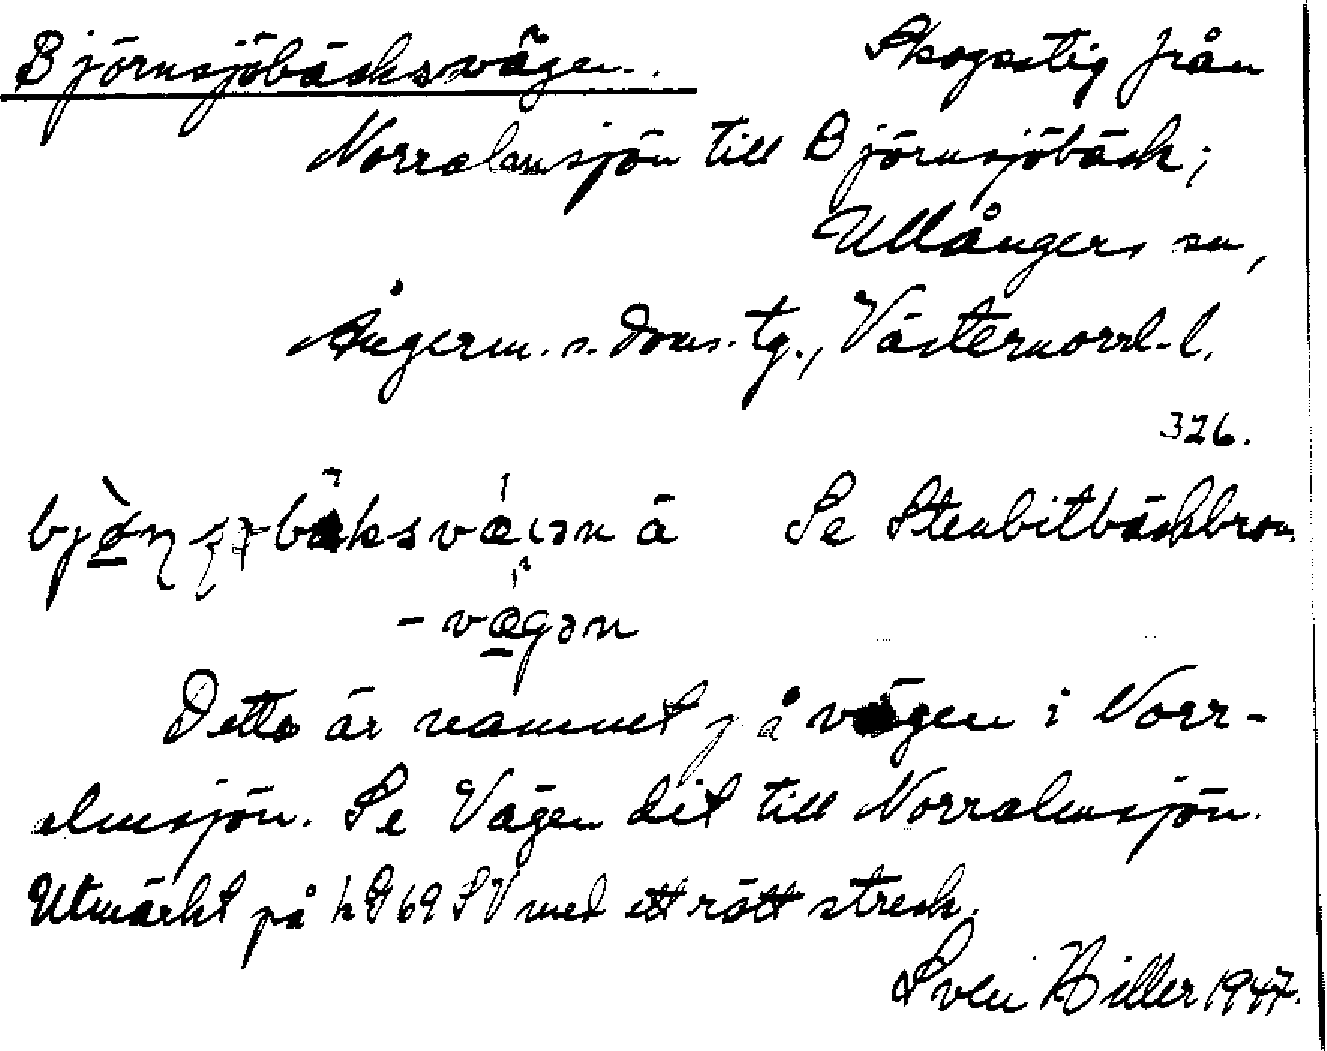 Björnsjöbäcksvägen. Skogsstig från
Norralmsjön till Björnsjöbäck;
Ullångers sn,
Ångerm. s. doms. tg., Västernorrl. l.
326.
Se Stenbitbäckbron
-vä̀gən
Detta är namnet på vägen i Norr-
almsjön. Se Vägen dit till Norralmsjön.
Utmärkt på hS 69 SV med ett rött streck.
Sven Hiller 1947.